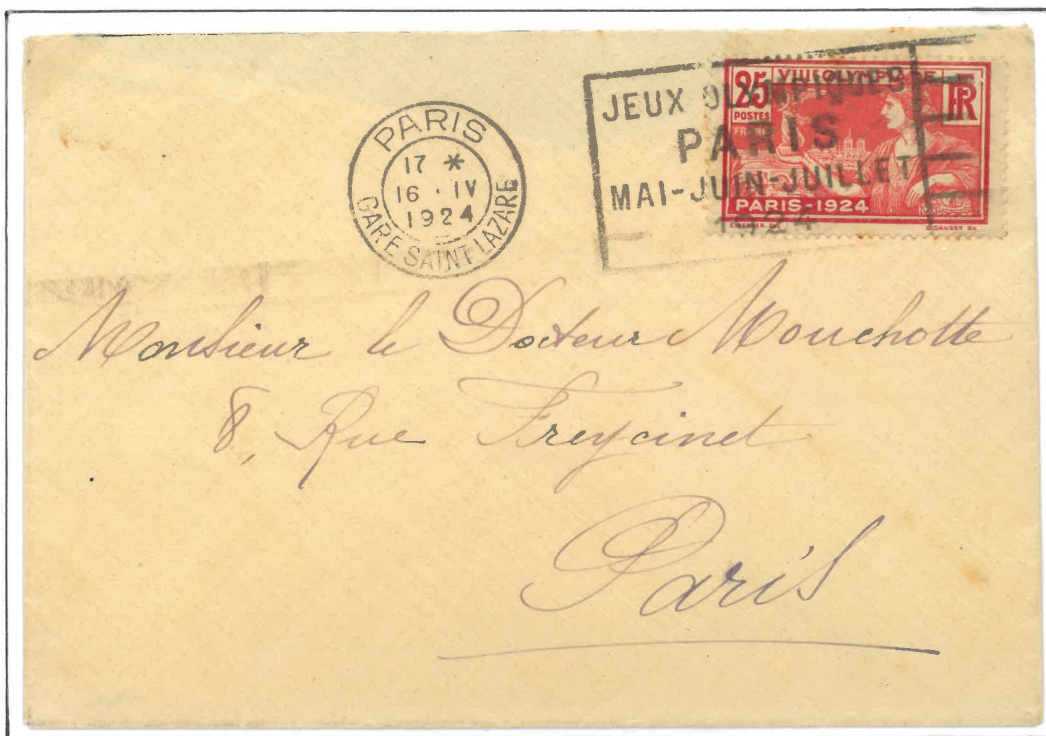 PARIS
17 *
16 · IV
1924
GARE SAINT LAZARE
JEUX OLYMPIQUES
PARIS
MAI-JUIN-JUILLET
1924
25 VIIIE OLYMPIADE RF
POSTES
FRANCE
PARIS-1924
G. DAUSSY Sc
Monsieur le Docteur Mouchotte
8, Rue Freycinet
Paris